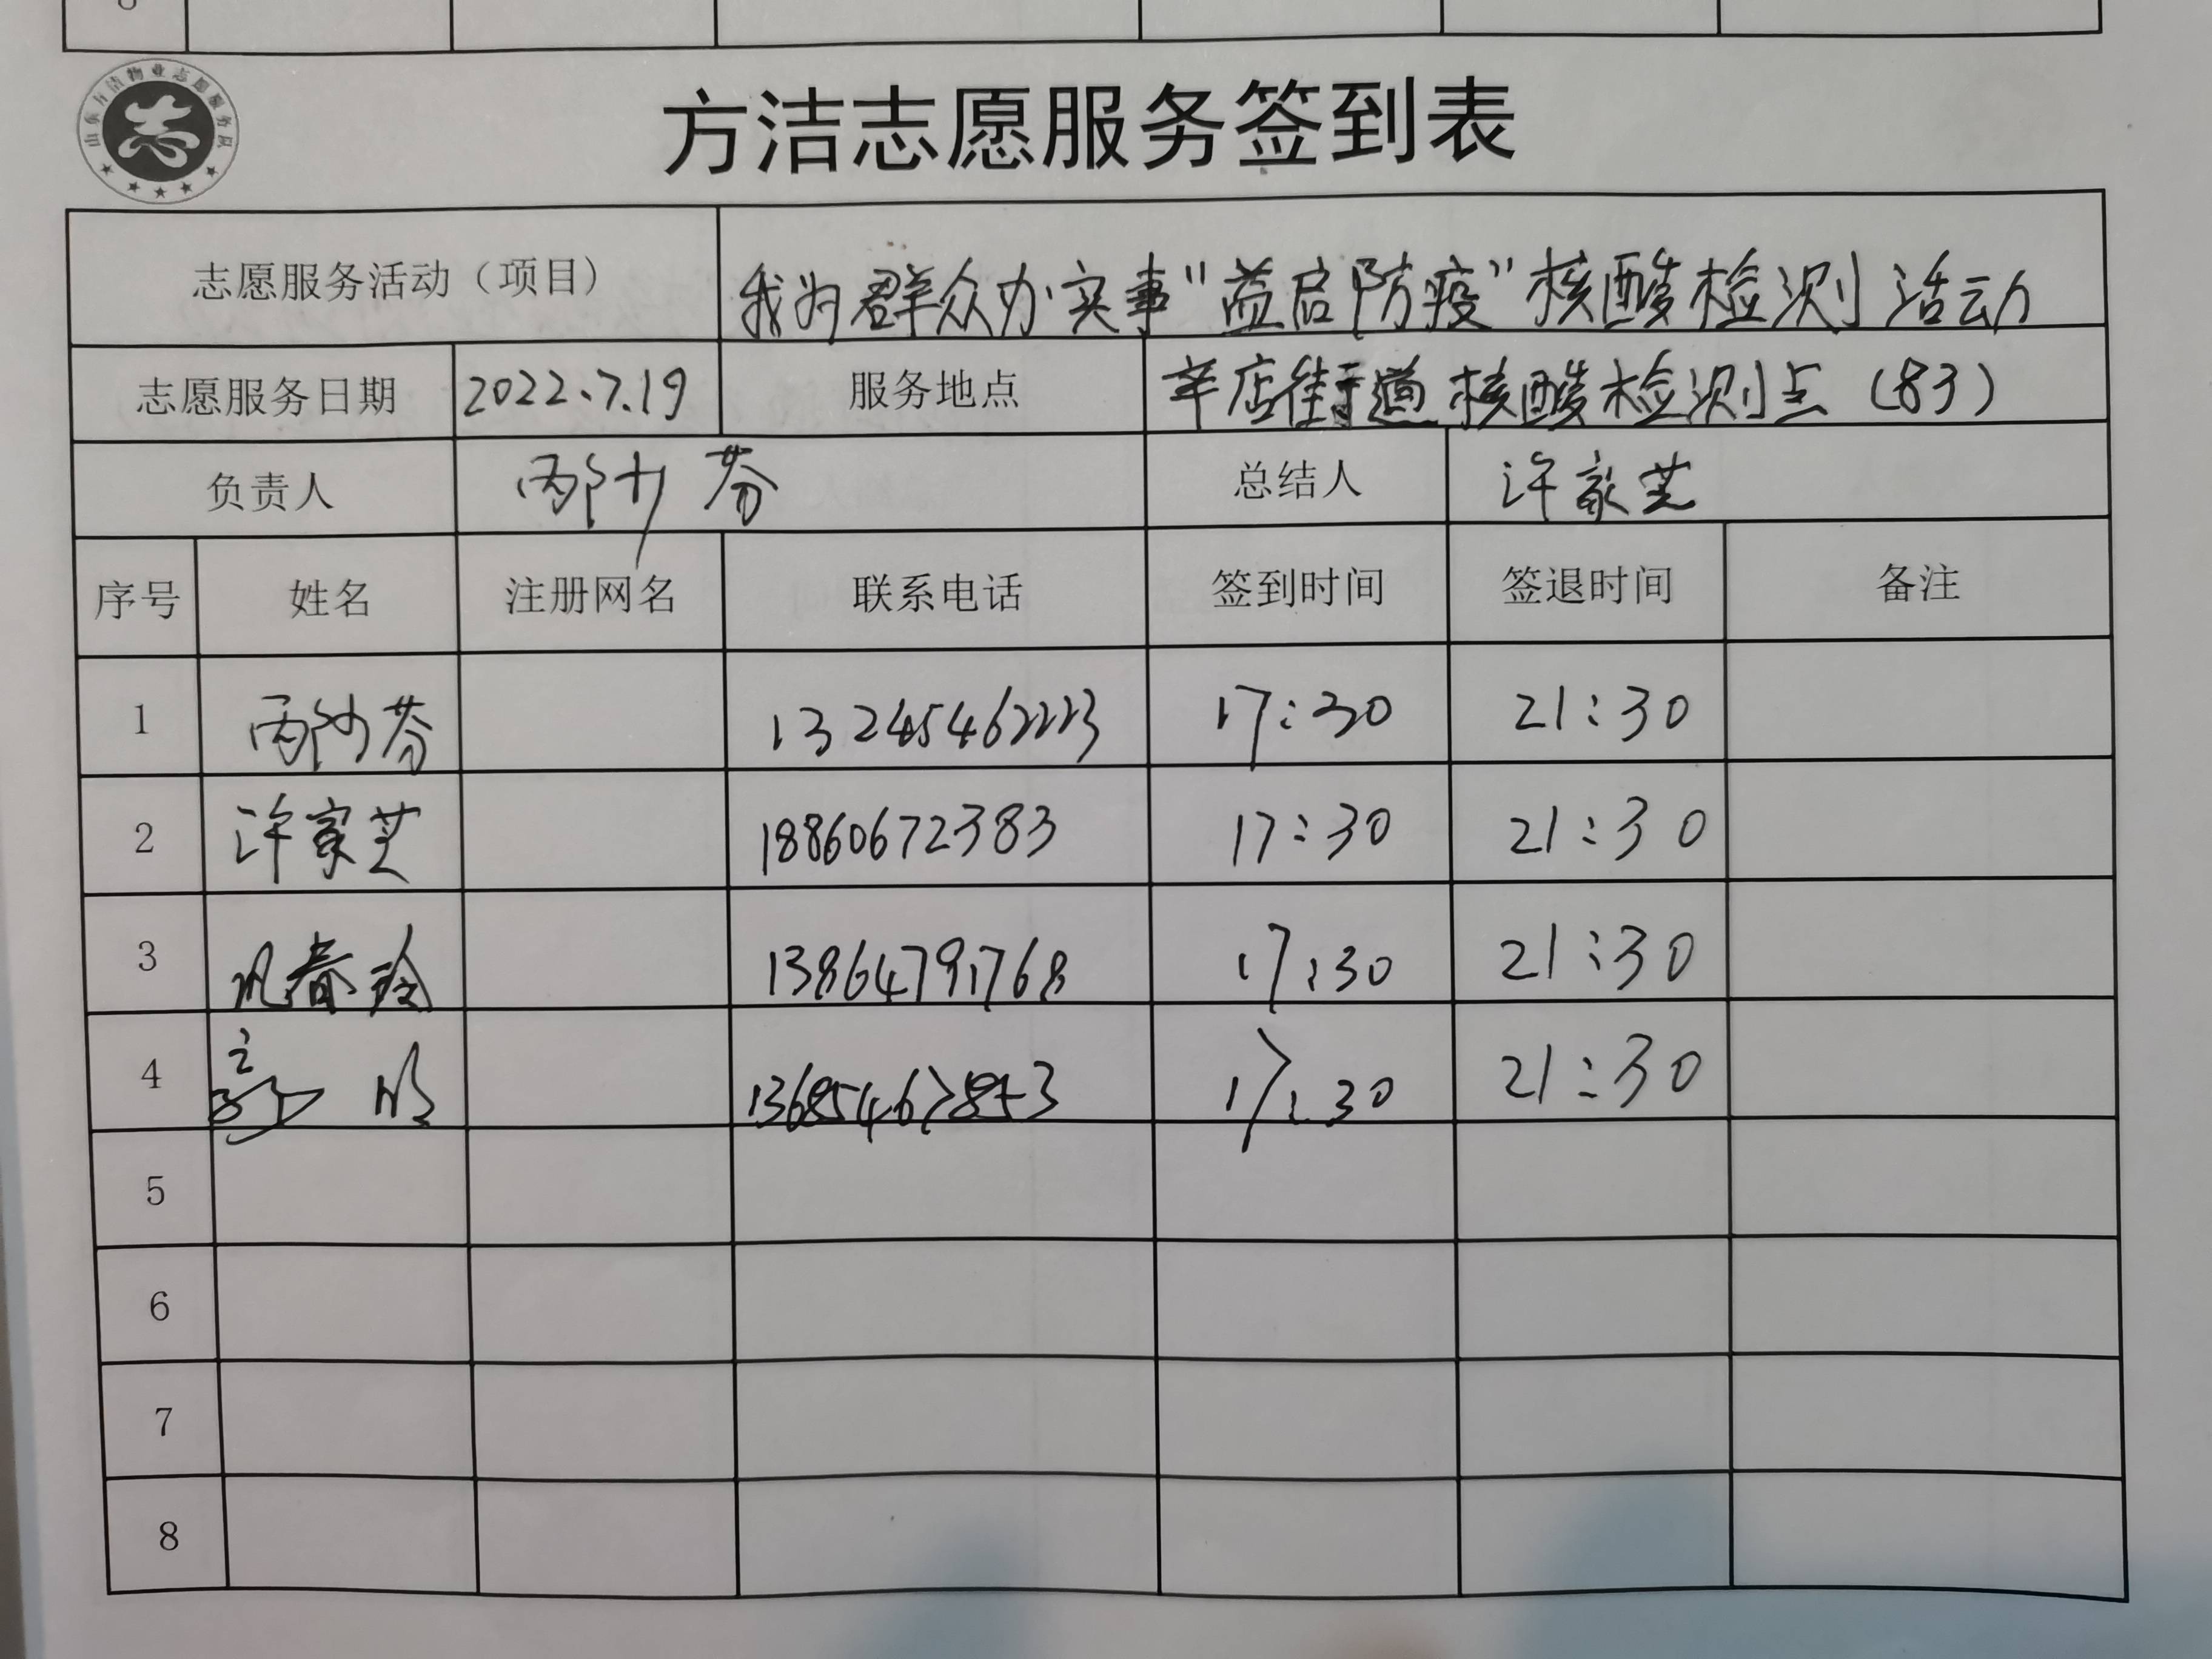 山东方洁物业志愿服务队
方洁志愿服务签到表
志愿服务活动（项目） 我为群众办实事“益启防疫”核酸检测活动
志愿服务日期 2022.7.19 服务地点 辛店街道核酸检测点（83）
负责人 芬 总结人 许家芝
序号 姓名 注册网名 联系电话 签到时间 签退时间 备注
1 芬 13245462223 17:30 21:30
2 许家芝 18860672383 17:30 21:30
3 春玲 13864791768 17:30 21:30
4 17:30 21:30
5
6
7
8